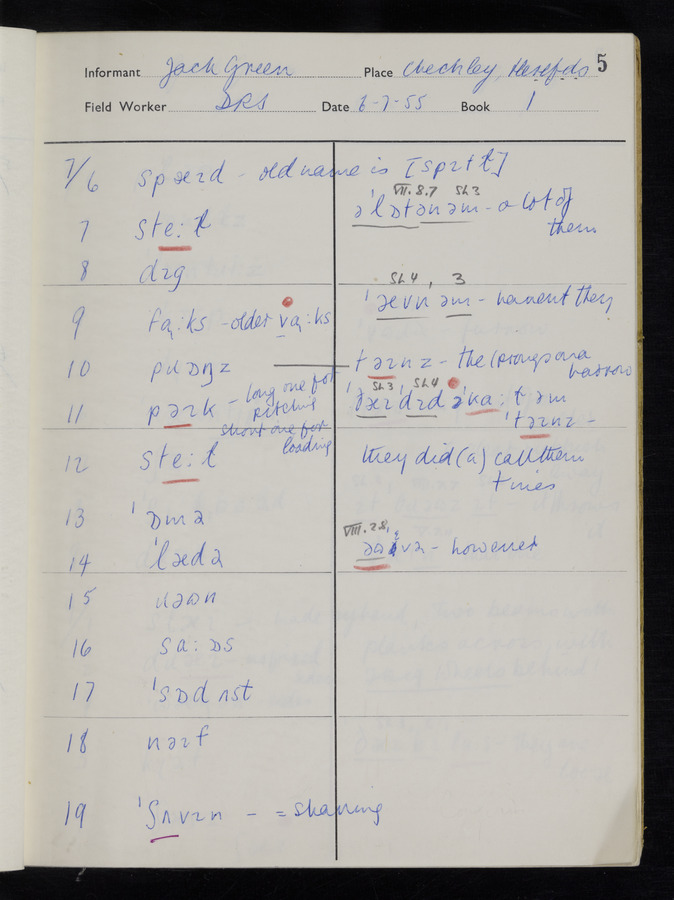 5
Informant Jack Green Place Checkley, Herefds
Field Worker DRS Date 6-7-55 Book 1
7/6 spæɪd - old name is [spɪtɫ]
7 ste:ɫ
8 dɪg
9 fɑ:ks - older vɑ:ks
10
11 pəɪk - long one for
pitching
short one for
loading
12 ste:ɫ
13 ˈɒmə
14 ˈlædə
15
16
17 ˈsɒdʌst
18
19 ˈʃʌvɪn - = shaving
VII.8.7 Sh3
- a lot of
them
Sh4, 3
ˈævn əm - havent they
təɪnz - the (prongs on a
harrow
Sh3 Sh4
ˈtəɪnz -
they did (a) call them
tines
VIII.28,
- however